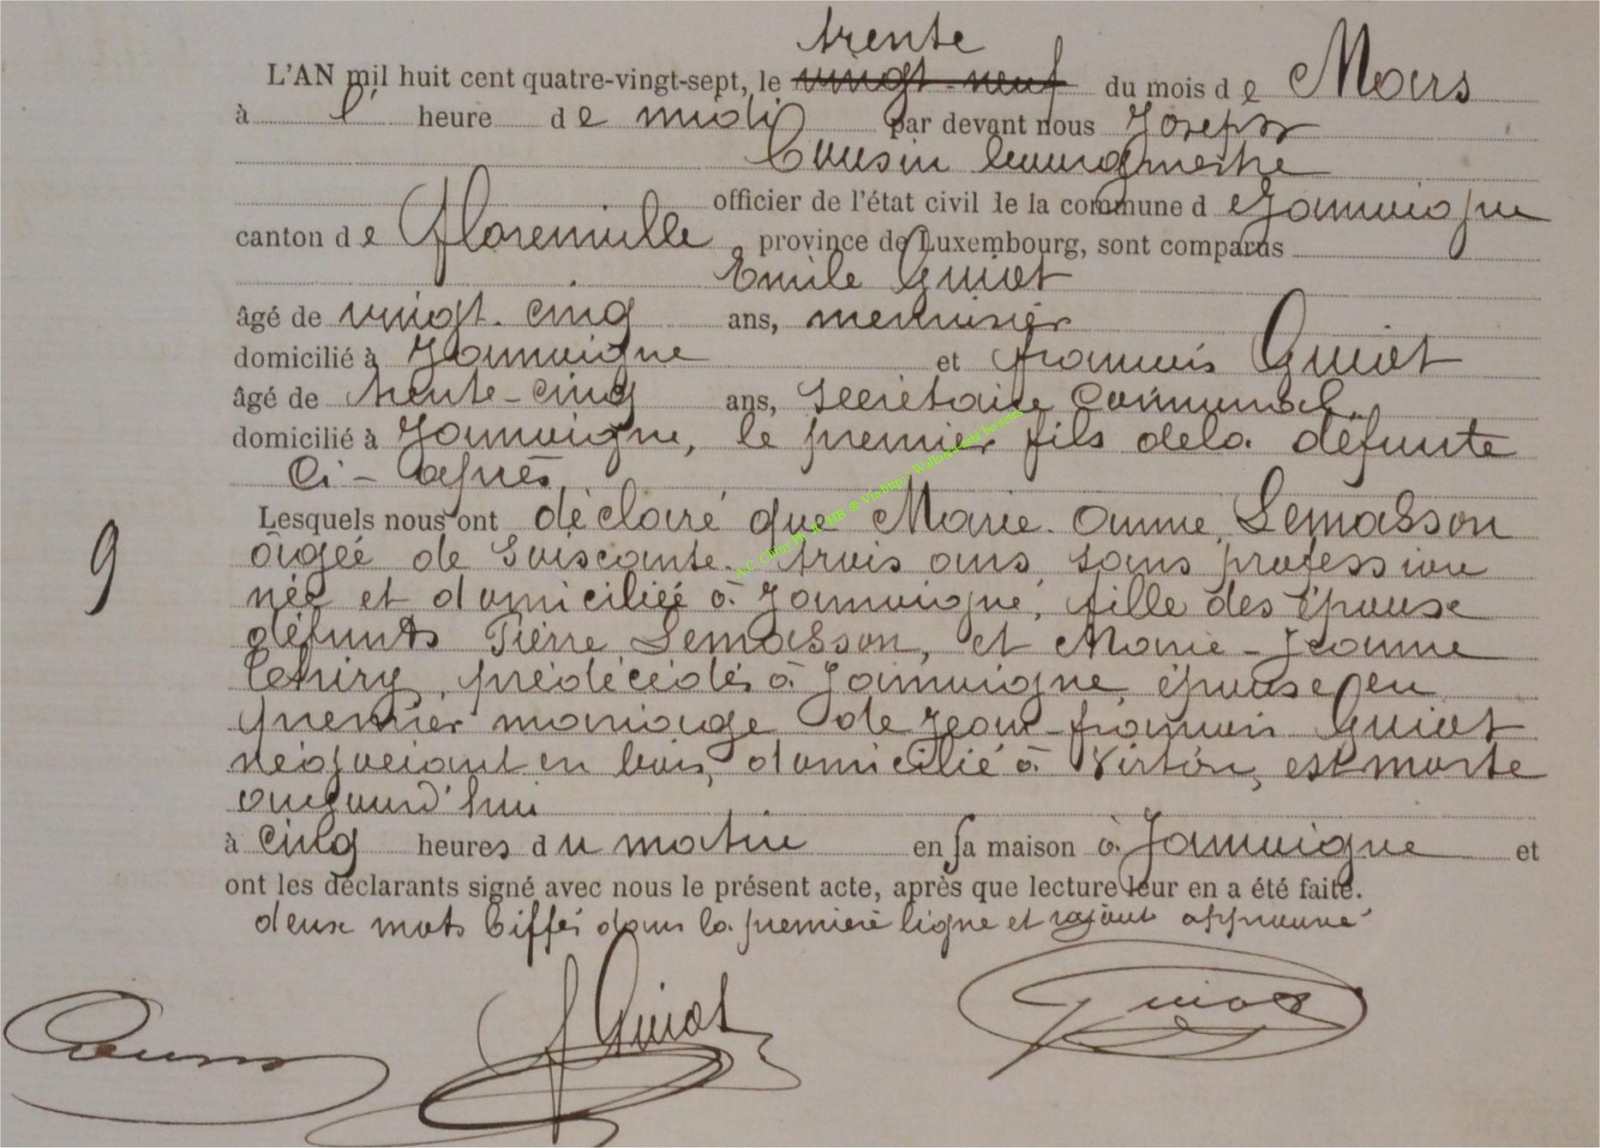 trente
L'AN mil huit cent quatre-vingt-sept, le vingt-neuf du mois de Mars
à l' heure de midi par devant nous Joseph
Cousin bourgmestre
officier de l'état civil de la commune d e Jamoigne
canton de Florenville province de Luxembourg, sont comparus
Emile Guiot
âgé de vingt-cinq ans, menuisier
domicilié à Jamoigne et françois Guiot
âgé de trente-cinq ans, secrétaire Communal
domicilié à Jamoigne, le premier fils dela défunte
Ci-après
Lesquels nous ont déclaré que Marie-Anne Lemasson
âgée de soixante-trois ans, sans profession
née et domiciliée à Jamoigne, fille des époux
défunts Pierre Lemasson, et Marie-Jeanne
Thiry, prédécédés à Jamoigne, épouse en
premier mariage de Jean-françois Guiot
négociant en bois, domicilié à Virton, est morte
9
aujourd'hui
à cinq heures du matin en sa maison à Jamoigne et
ont les déclarants signé avec nous le présent acte, après que lecture leur en a été faite.
deux mots biffés dans la première ligne et rajout approuvé
Cousin F Guiot Guiot